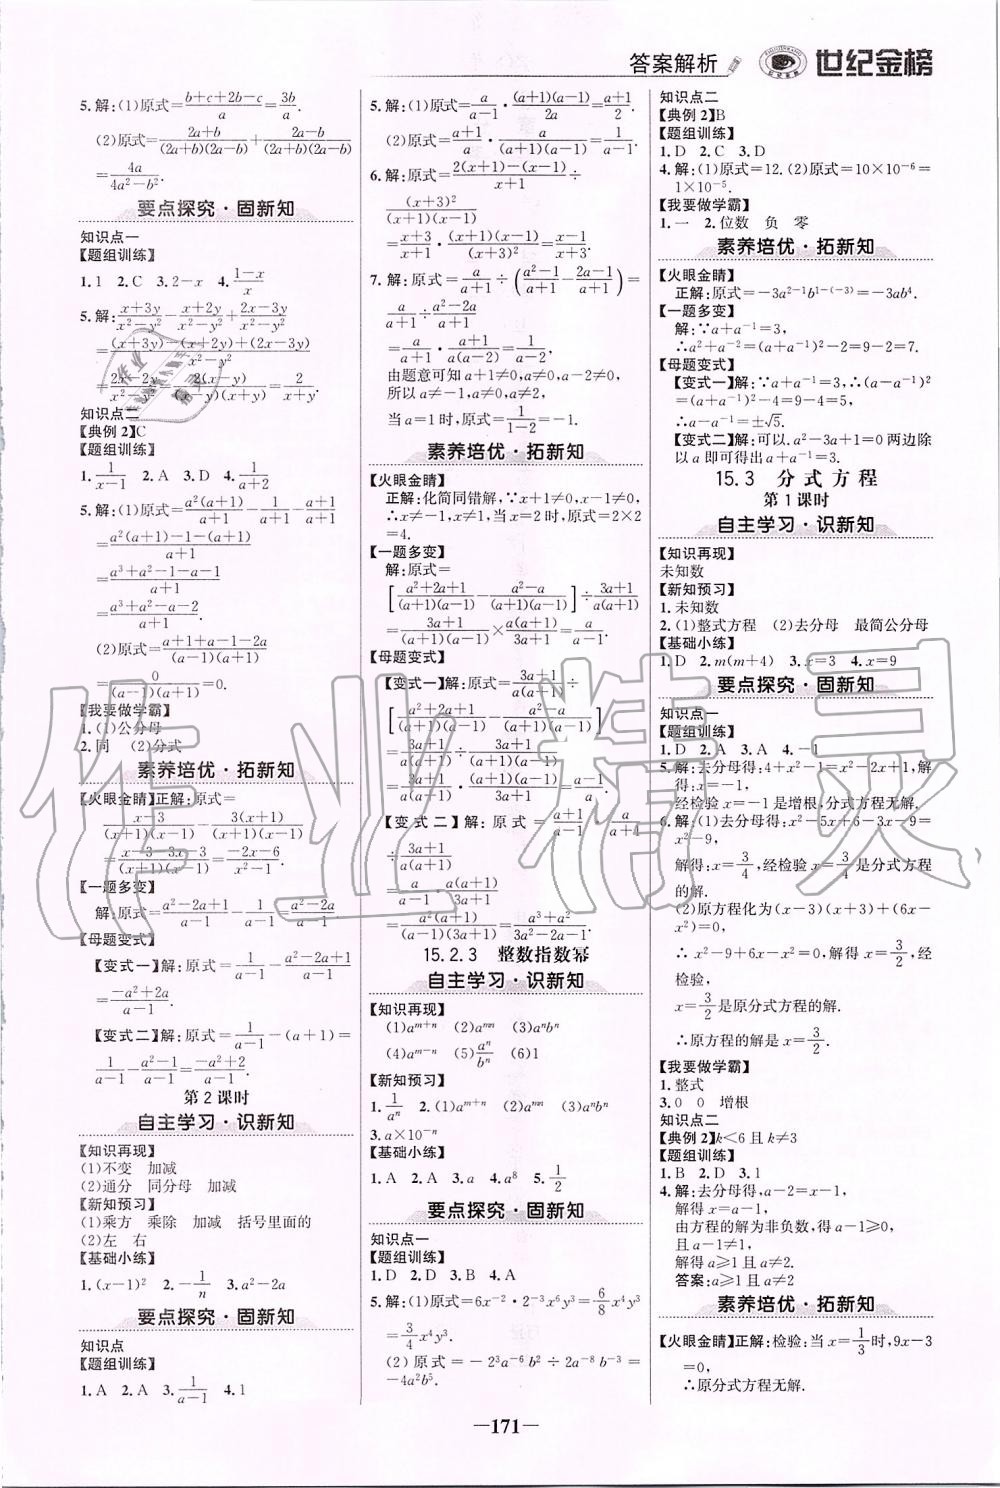 答案解析 世纪金榜
5.解:(1)原式=\frac{b+c+2b-c}{a}=\frac{3b}{a}.
(2)原式=\frac{2a+b}{(2a+b)(2a-b)}+\frac{2a-b}{(2a+b)(2a-b)}=
\frac{4a}{4a²-b²}.
要点探究·固新知
知识点一
【题组训练】
1.1 2.C 3.2-x 4.\frac{1-x}{x}
5.解:\frac{x+3y}{x²-y²}-\frac{x+2y}{x²-y²}+\frac{2x-3y}{x²-y²}
=\frac{(x+3y)-(x+2y)+(2x-3y)}{x²-y²}
=\frac{2x-2y}{x²-y²}=\frac{2(x-y)}{(x-y)(x+y)}=\frac{2}{x+y}.
知识点二
【典例2】C
【题组训练】
1.\frac{1}{x-1} 2.A 3.D 4.\frac{1}{a+2}
5.解:(1)原式=\frac{a²(a+1)}{a+1}-\frac{1}{a+1}-\frac{a+1}{a+1}
=\frac{a²(a+1)-1-(a+1)}{a+1}
=\frac{a³+a²-1-a-1}{a+1}
=\frac{a³+a²-a-2}{a+1}.
(2)原式=\frac{a+1+a-1-2a}{(a-1)(a+1)}
=\frac{0}{(a-1)(a+1)}=0.
【我要做学霸】
1.(1)公分母
2.同 (2)分式
素养培优·拓新知
【火眼金睛】正解:原式=
\frac{x-3}{(x+1)(x-1)}-\frac{3(x+1)}{(x+1)(x-1)}
=\frac{x-3-3x-3}{(x+1)(x-1)}=\frac{-2x-6}{x²-1}.
【一题多变】
解:原式=\frac{a²-2a+1}{a-1}-\frac{1}{a-1}=\frac{a²-2a}{a-1}.
【母题变式】
【变式一】解:原式=\frac{1}{a-1}-\frac{a²-2a+1}{a-1}=
\frac{-a²+2a}{a-1}.
【变式二】解:原式=\frac{1}{a-1}-(a+1)=
\frac{1}{a-1}-\frac{a²-1}{a-1}=\frac{-a²+2}{a-1}.
第2课时
自主学习·识新知
【知识再现】
(1)不变 加减
(2)通分 同分母 加减
【新知预习】
(1)乘方 乘除 加减 括号里面的
(2)左 右
【基础小练】
1.(x-1)² 2.-\frac{1}{n} 3.a²-2a
要点探究·固新知
知识点
【题组训练】
1.A 2.A 3.\frac{1}{a-1} 4.1
5.解:(1)原式=\frac{a}{a-1}·\frac{(a+1)(a-1)}{2a}=\frac{a+1}{2}.
(2)原式=\frac{a}{a+1}·\frac{(a+1)(a+1)}{a(a-1)}=\frac{a+1}{a-1}.
6.解:原式=\frac{2(x+1)-(x-1)}{x+1}÷
\frac{(x+3)²}{(x+1)(x-1)}
=\frac{x+3}{x+1}·\frac{(x+1)(x-1)}{(x+3)²}=\frac{x-1}{x+3}.
7.解:原式=\frac{a}{a+1}÷(\frac{a²-1}{a+1}-\frac{2a-1}{a+1})=
\frac{a}{a+1}÷\frac{a²-2a}{a+1}
=\frac{a}{a+1}·\frac{a+1}{a(a-2)}=\frac{1}{a-2}.
由题意可知a+1≠0,a-2≠0,a≠0,
所以a≠-1,a≠0,a≠2,
当a=1时,原式=\frac{1}{1-2}=-1.
素养培优·拓新知
【火眼金睛】
正解:化简同错解,∵x+1≠0,x-1≠0,
∴x≠-1,x≠1,当x=2时,原式=2×2
=4.
【一题多变】
解:原式=
[\frac{a²+2a+1}{(a+1)(a-1)}-\frac{a²-a}{(a+1)(a-1)}]÷\frac{3a+1}{a(a+1)}
=\frac{3a+1}{(a+1)(a-1)}×\frac{a(a+1)}{3a+1}=\frac{a}{a-1}.
【母题变式】
【变式一】解:原式=\frac{3a+1}{a(a+1)}÷
[\frac{a²+2a+1}{(a+1)(a-1)}-\frac{a²-a}{(a+1)(a-1)}]
=\frac{3a+1}{a(a+1)}÷\frac{3a+1}{(a+1)(a-1)}
=\frac{3a+1}{a(a+1)}·\frac{(a+1)(a-1)}{3a+1}=\frac{a-1}{a}.
【变式二】解:原式=\frac{a+1}{a-1}-\frac{a}{a+4}
÷\frac{3a+1}{a(a+1)}
=\frac{a}{a-1}·\frac{a(a+1)}{3a+1}
=\frac{a²(a+1)}{(a-1)(3a+1)}=\frac{a³+a²}{3a²-2a-1}.
15.2.3 整数指数幂
自主学习·识新知
【知识再现】
(1)a^{m+n} (2)a^{mn} (3)aⁿbⁿ
(4)a^{m-n} (5)\frac{aⁿ}{bⁿ} (6)1
【新知预习】
1.\frac{1}{aⁿ} 2.(1)a^{m+n} (2)a^{mn} (3)aⁿbⁿ
3.a×10^{-n}
【基础小练】
1.A 2.A 3.a 4.a⁸ 5.\frac{1}{2}
要点探究·固新知
知识点一
【题组训练】
1.D 2.D 3.B 4.A
5.解:(1)原式=6x^{-2}·2^{-3}x⁶y³=\frac{6}{8}x⁴y³
=\frac{3}{4}x⁴y³.
(2)原式=-2³a^{-6}b²÷2a^{-8}b^{-3}=
-4a²b⁵.
知识点二
【典例2】B
【题组训练】
1.D 2.C 3.D
4.解:(1)原式=12.(2)原式=10×10^{-6}=
1×10^{-5}.
【我要做学霸】
1.一 2.位数 负 零
素养培优·拓新知
【火眼金睛】
正解:原式=-3a^{2-1}b^{1-(-3)}=-3ab⁴.
【一题多变】
解:∵a+a^{-1}=3,
∴a²+a^{-2}=(a+a^{-1})²-2=9-2=7.
【母题变式】
【变式一】解:∵a+a^{-1}=3,∴(a-a^{-1})²
=(a+a^{-1})²-4=9-4=5,
∴a-a^{-1}=±√5.
【变式二】解:可以.a²-3a+1=0两边除
以a即可得出a+a^{-1}=3.
15.3 分式方程
第1课时
自主学习·识新知
【知识再现】
未知数
【新知预习】
1.未知数
2.(1)整式方程 (2)去分母 最简公分母
【基础小练】
1.D 2.m(m+4) 3.x=3 4.x=9
要点探究·固新知
知识点一
【题组训练】
1.D 2.A 3.A 4.-1
5.解:去分母得:4+x²-1=x²-2x+1,解
得:x=-1,
经检验x=-1是增根,分式方程无解.
6.解:(1)去分母得:x²-5x+6-3x-9=
x²-9,
解得:x=\frac{3}{4},经检验x=\frac{3}{4}是分式方程
的解.
(2)原方程化为(x-3)(x+3)+(6x-
x²)=0,
∴x²-9+6x-x²=0,解得x=\frac{3}{2},经
检验,
x=\frac{3}{2}是原分式方程的解.
∴原方程的解是x=\frac{3}{2}.
【我要做学霸】
1.整式
3.0 0 增根
知识点二
【典例2】k<6且k≠3
【题组训练】
1.B 2.D 3.1
4.解:去分母得,a-2=x-1,
解得x=a-1,
由方程的解为非负数,得a-1≥0,
且a-1≠1,
解得:a≥1且a≠2.
答案:a≥1且a≠2
素养培优·拓新知
【火眼金睛】正解:检验:当x=\frac{1}{3}时,9x-3
=0,
∴原分式方程无解.
—171—
作业精灵